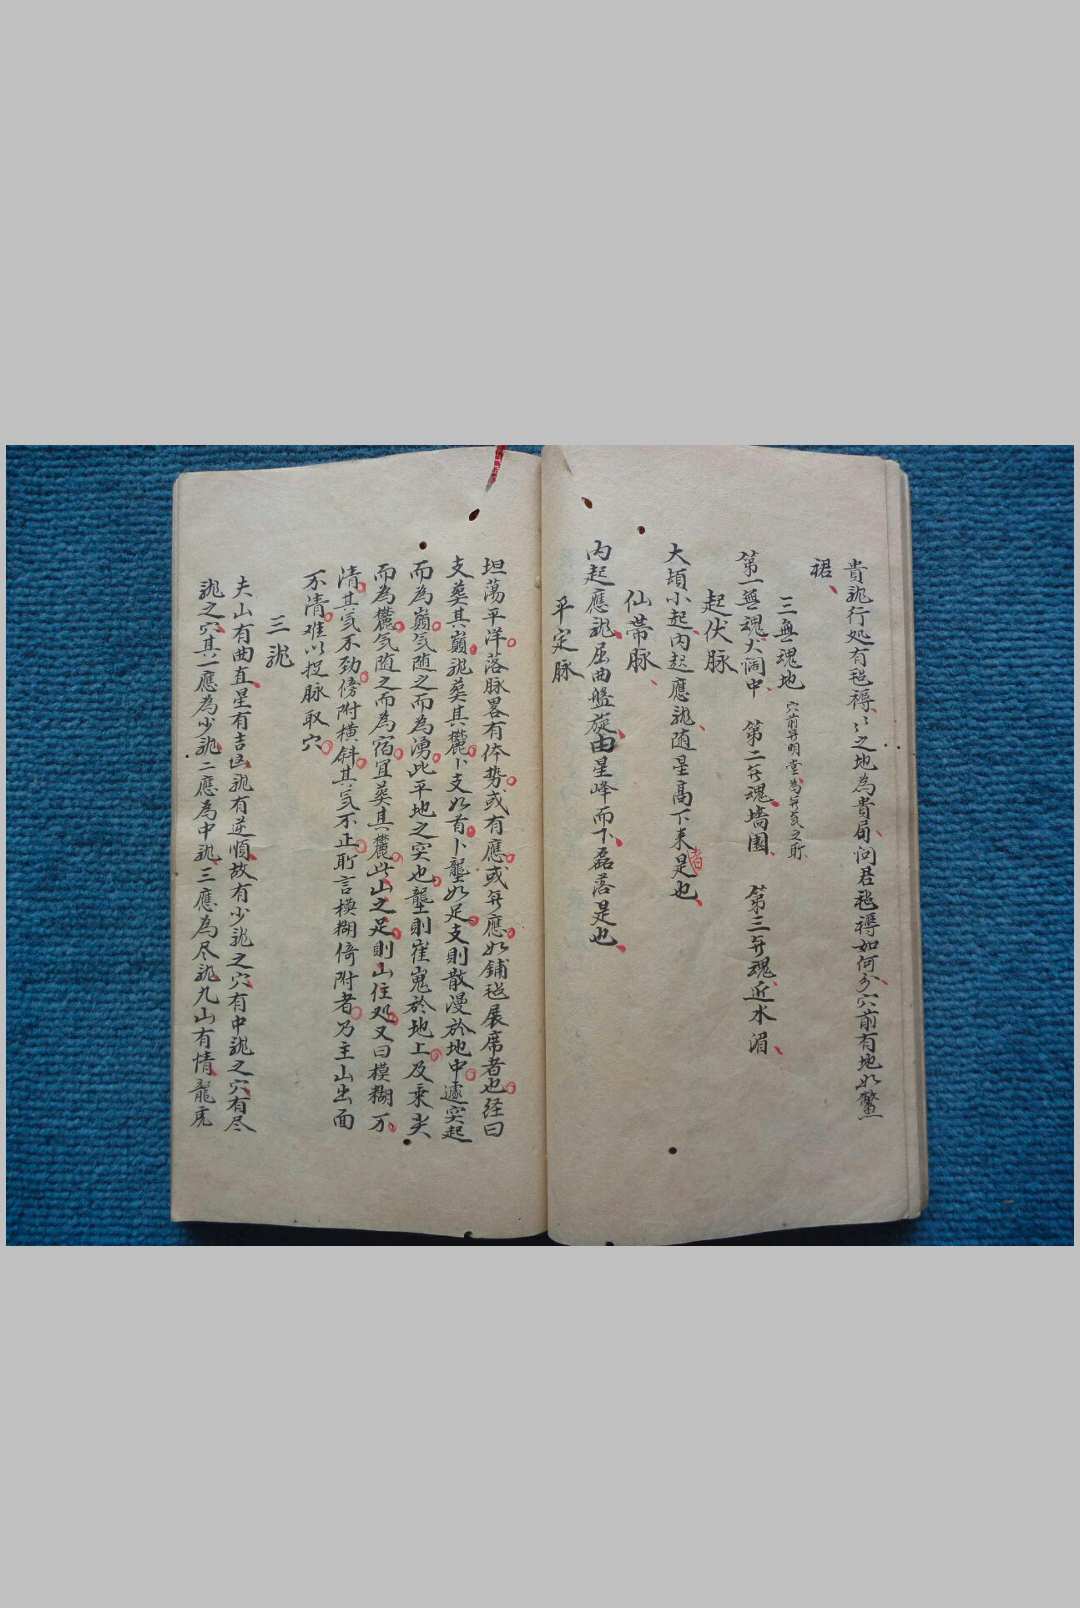 貴龍行処有毯褥〻之地為貴局问君毯褥如何分穴前有地如鱉
裙
三無魂地 穴前無明堂為無気之所
第一無魂大澗中 第二無魂墻園 第三無魂近水湄
起伏脉
大墳小起内起應龍随星高下来者是也
仙帯脉
内起應龍屈曲盤旋由星峰而下磊落是也
平定脉
坦蕩平洋落脉畧有体势或有應或無應如鋪毯展席者也経曰
支葬其巔龍葬其麓卜支如首卜壟如足支則散漫於地中遽突起
而為巔気随之而為湧此平地之突也壟則崔嵬於地上及来夫
而為麓気随之而為宿宜葬其麓此山之足則山住処又曰模糊不
清其気不劲傍附横斜其気不正所言模糊倚附者乃主山出面
不清难以捉脉取穴
三龍
夫山有曲直星有吉凶龍有逆順故有少龍之穴有中龍之穴有尽
龍之穴其一應為少龍二應為中龍三應為尽龍九山有情龍虎